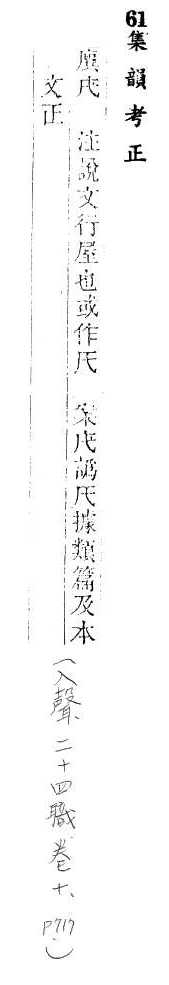 61集韻考正
廙 注說文行屋也或作 案 譌 據類篇及本
文正
(入聲、二十四職 卷十、P717)